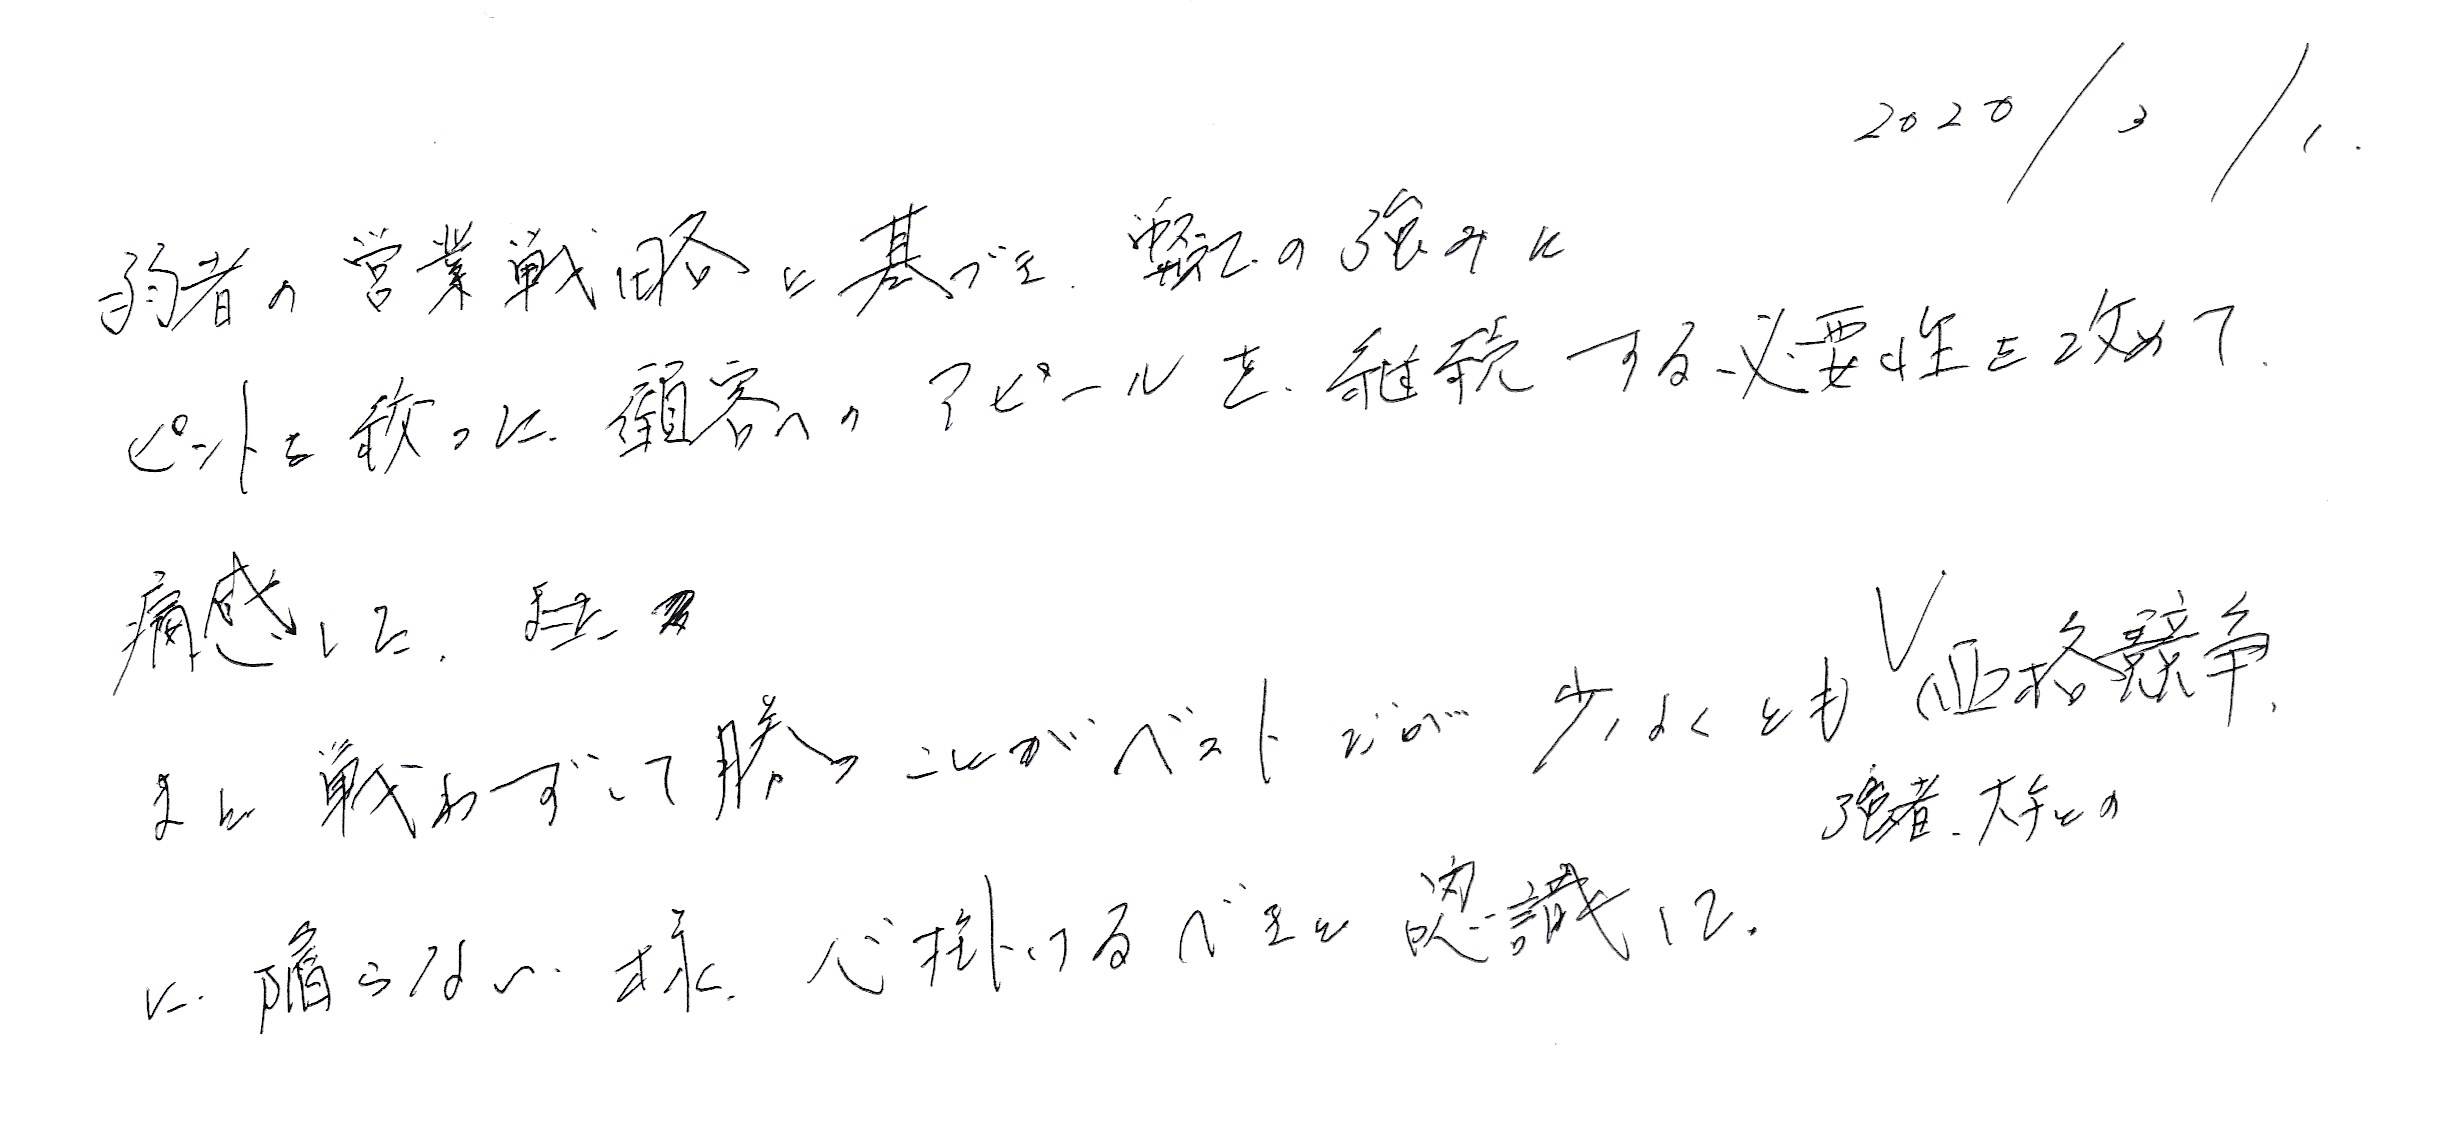 2020/3/1.
弱者の営業戦略に基づき、弊社の強みに
ピントを絞った、顧客へのアピールを、継続する必要性を改めて
痛感した。また
また戦わずして勝つことがベストだが 少なくとも価格競争、
強者、大手との
に陥らない様、心掛けるべきと認識した。